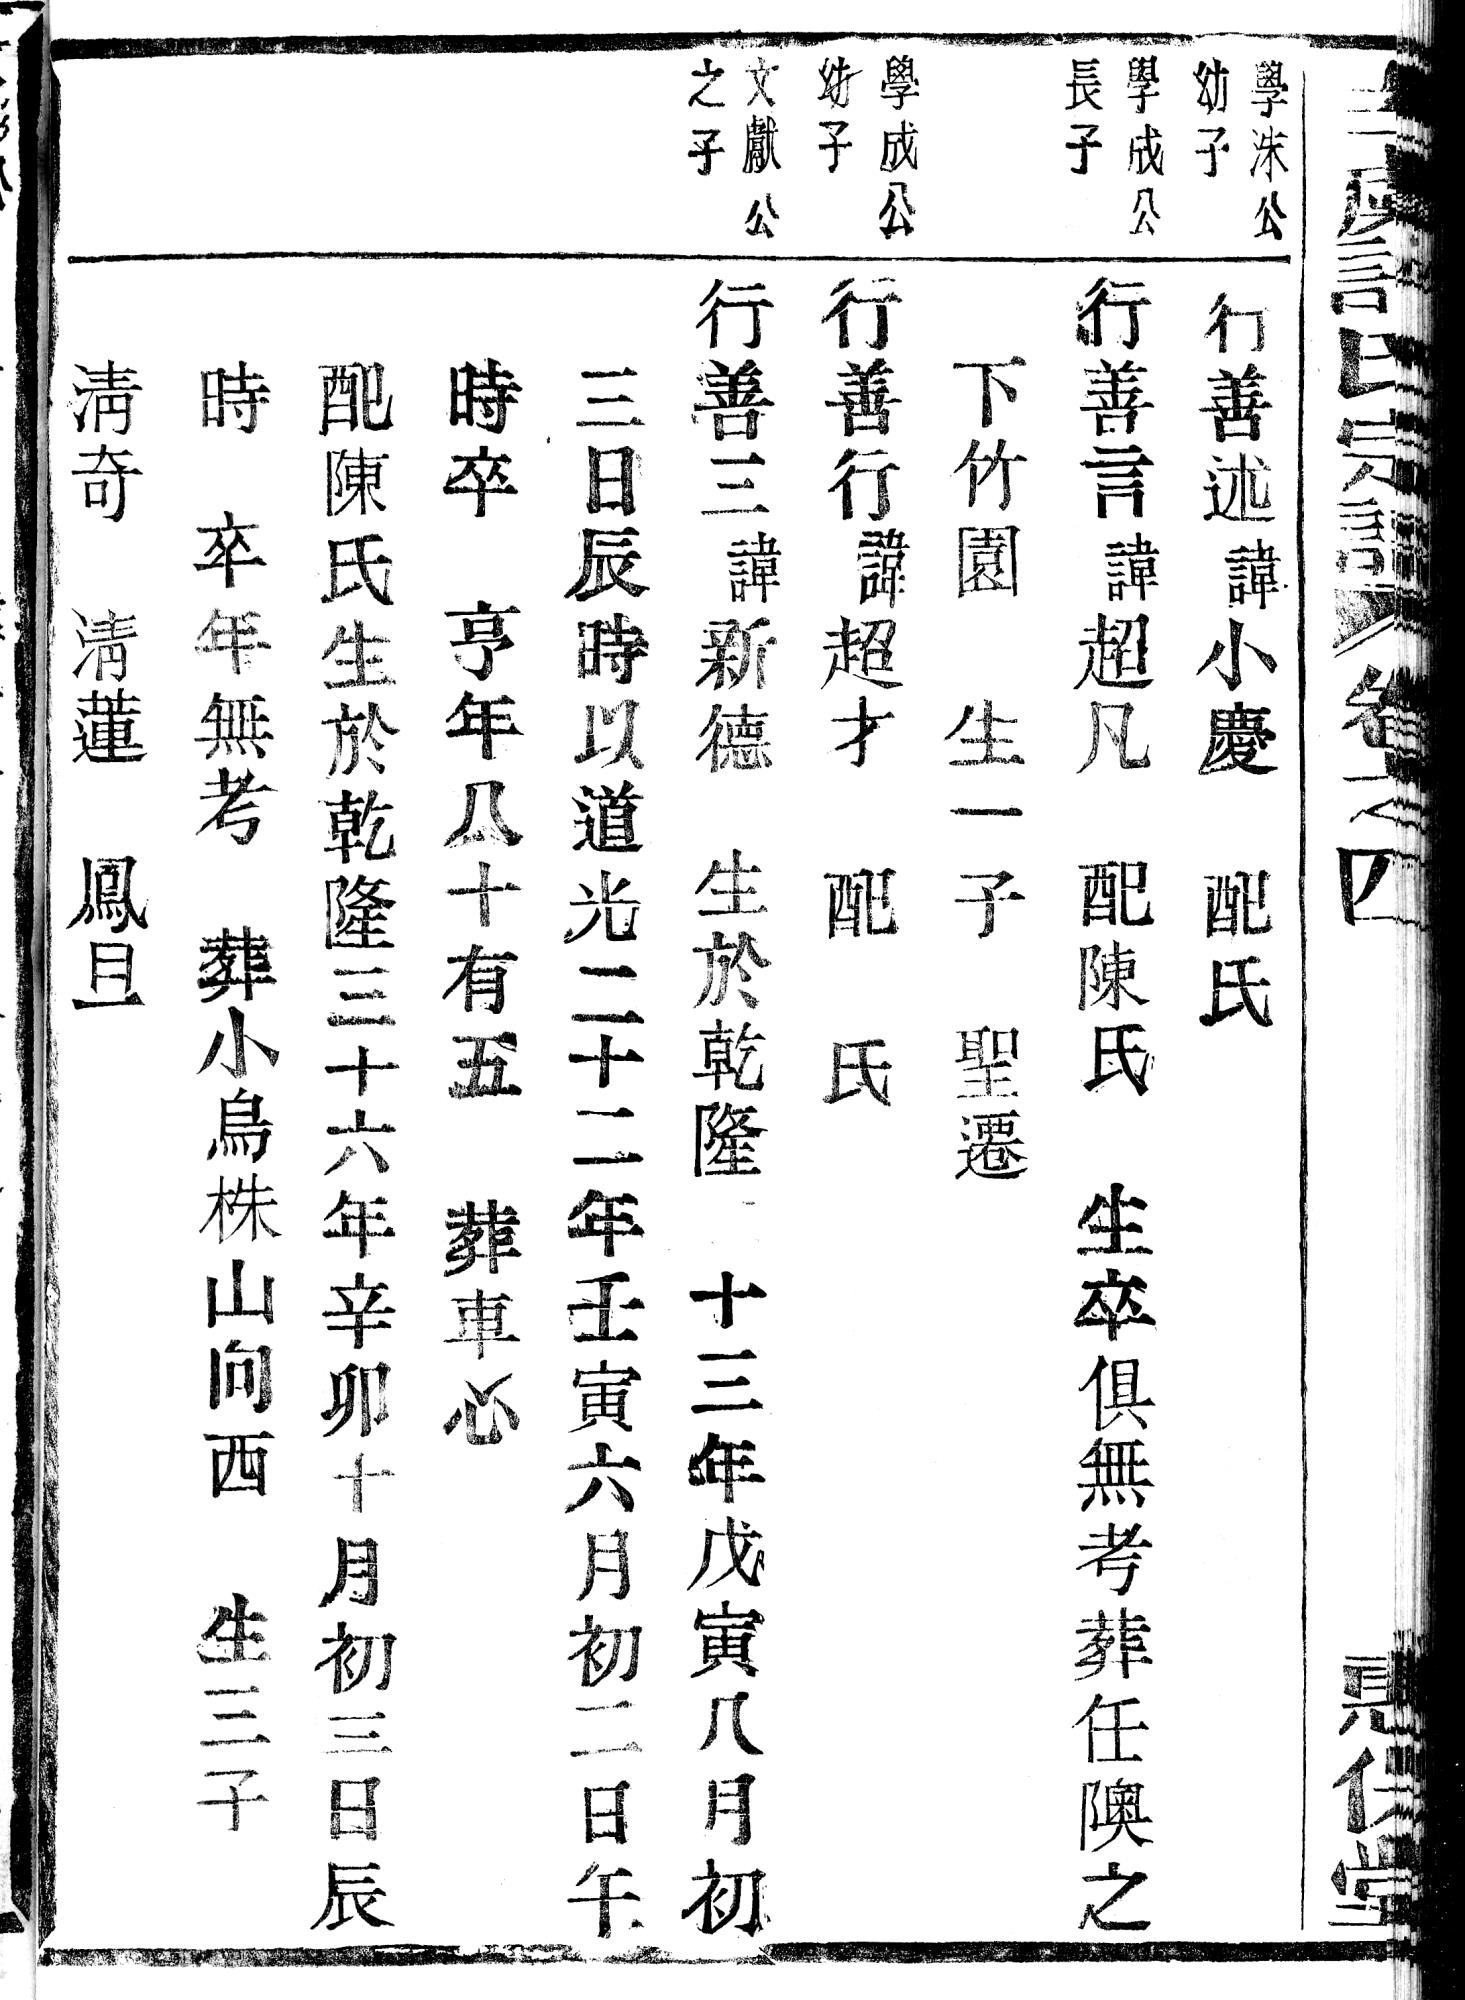 氏宗譜 卷之四 堂
學洙公
幼子
行善述諱小慶 配氏
學成公
長子
行善言諱超凡 配陳氏 生卒俱無考葬任隩之
下竹園 生一子 聖遷
學成公
幼子
行善行諱超才 配 氏
文獻公
之子
行善三諱新德 生於乾隆 十三年戊寅八月初
三日辰時以道光二十二年壬寅六月初二日午
時卒 亨年八十有五 葬車心
配陳氏生於乾隆三十六年辛卯十月初三日辰
時 卒年無考 葬小鳥株山向西 生三子
淸奇 淸蓮 鳳旦